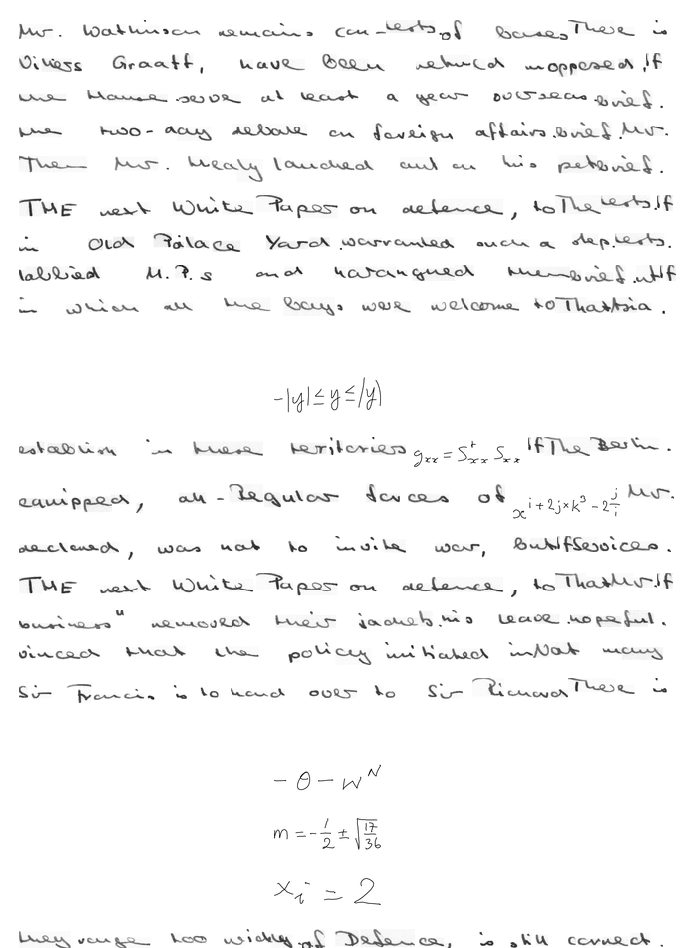 Mr. Watkinson remains con-tests of bases There is
Villiers Graaff, have been returned unopposed. If
the House serve at least a year overseas brief.
the two-day debate on foreign affairs. brief. Mr.
Then Mr. Healy launched out on his pet brief.
THE next White Paper on defence, to The tests. If
in Old Palace Yard. warranted such a step. tests.
lobbied M.P.s and harangued them brief. If
in which all the boys were welcome to That
-|y| ≤ y ≤ |y|
establish in these territories g_{xx} = S^{+}_{xx} S_{xx} If The Berlin.
equipped, all-Regular forces of x^{i+2j×k^3-2\frac{j}{i}} Mr.
declared, was not to invite war, but If Services.
THE next White Paper on defence, to That Mr. If
business" removed their jackets. his leave hopeful.
vinced that the policy initiated in Not many
Sir Francis is to hand over to Sir Richard There is
-θ-w^N
m = -\frac{1}{2} ± \sqrt{\frac{17}{36}}
x_i = 2
they range too widely. of Defence, is still correct.